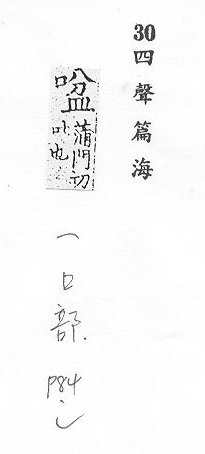 30 四聲篇海
⿰口盆 蒲門切
吐也
(口部. P84.)